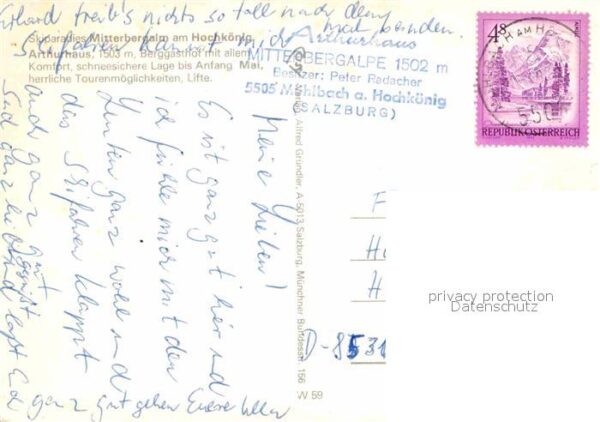 Skiparadies Mitterbergalm am Hochkönig,
Arthurhaus, 1503 m, Berggasthof mit allem
Komfort, schneesichere Lage bis Anfang Mai,
herrliche Tourenmöglichkeiten, Lifte.
Arthurhaus
MITTERBERGALPE 1502 m
Besitzer: Peter Radacher
5505 Mühlbach a. Hochkönig
(SALZBURG)
4S
REPUBLIK ÖSTERREICH
Meine Lieben!
Es ist ganz gut hier und
ich fühle mich mit den
Leuten ganz wohl und
das Skifahren klappt
auch ganz gut
Seid ganz
und laßt
ganz gut gehen Eure
Erhard treib's nichts so toll nach dem
Skifahren
Alfred Gründler, A-5013 Salzburg, Münchner Bundesstr. 156
W 59
F
H
H
D-8531
privacy protection
Datenschutz